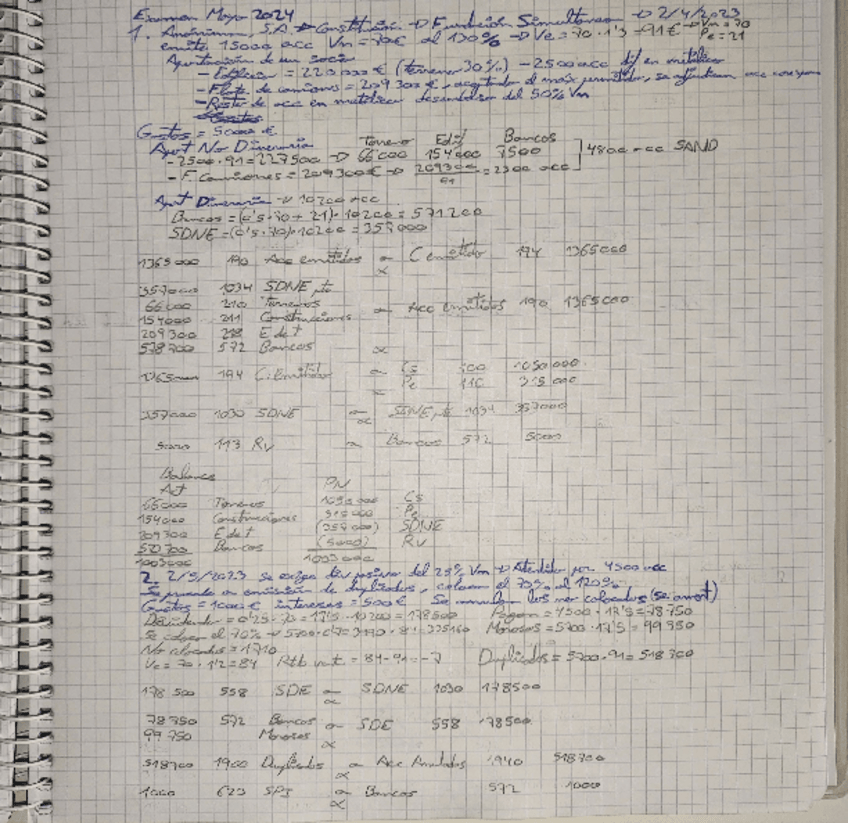 Examen Mayo 2024
1. Anónima, S.A. → Constitución → Fundación Simultánea → 2/4/2023
emite 15000 acc Vn = 70€ al 130% → Ve = 70 · 1'3 = 91 € → Vn = 70
Pe = 21
Aportación de un socio
- Edificio = 220 000 € (terreno 30%) - 2500 acc dif en metálico
- Flota de camiones = 209 300 €, aceptado el max permitido, se adjudican acc
- Resto de acc en metálico desembolso del 50% Vn
Gastos = 5000 €
Aport No Dineraria Terreno Edif Bancos
- 2500 · 91 = 227500 → 66000 154000 7500
4800 acc SAND
- F. Camiones = 209300 € → 209300 / 91 = 2300 acc
Aport Dineraria → 10200 acc
Bancos = (0'5 · 70 + 21) · 10200 = 571200
SDNE = (0'5 · 70) · 10200 = 357000
1365000 190 Acc emitidas a C emitido 194 1365000
357000 1034 SDNE, pte
66000 210 Terrenos a Acc emitidas 190 1365000
154000 211 Construcciones
209300 218 E de t
578700 572 Bancos
1365000 194 C. Emitido a Cs 100 1050000
Pe 110 315000
357000 1030 SDNE a SDNE, pte 1034 357000
5000 113 Rv a Bancos 572 5000
Balance
Act PN
66000 Terrenos 1050000 Cs
154000 Construcciones 315000 Pe
209300 E de t (357000) SDNE
573700 Bancos (5000) Rv
1003000 1003000
2. 2/5/2023 se exige div pasivo del 25% Vn → Atendido por 4500 acc
Se procede a emisión de duplicados, colocan el 70% al 120%
Gastos = 1000 € intereses = 500 € Se anulan los no colocados (se amort)
Dividendo = 0'25 · 70 = 17'5 · 10200 = 178500 Pagan = 4500 · 17'5 = 78750
Se colocan el 70% → 5700 · 0'7 = 3990 · 84 = 335160 Morosos = 5700 · 17'5 = 99750
No colocados = 1710
Ve = 70 · 1'2 = 84 = 84 - 91 = -7 Duplicados = 5700 · 91 = 518700
178500 558 SDE a SDNE 1030 178500
78750 572 Bancos a SDE 558 178500
99750 Morosos
518700 1900 Duplicados a Acc Anuladas 1940 518700
1000 623 SPI a Bancos 572 1000